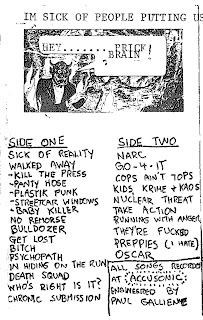 IM SICK OF PEOPLE PUTTING US
HEY........ ERICK
BRAIN!
SIDE ONE
SICK OF REALITY
WALKED AWAY
-KILL THE PRESS
-PANTY HOSE
-PLASTIK PUNK
-STREETCAR WINDOWS
-BABY KILLER
NO REMORSE
BULLDOZER
GET LOST
BITCH
PSYCHOPATH
IN HIDING ON THE RUN
DEATH SQUAD
WHO'S RIGHT IS IT?
CHRONIC SUBMISSION
SIDE TWO
NARC
GO-4-IT
COPS AIN'T TOPS
KIDS, KRIME + KAOS
NUCLEAR THREAT
TAKE ACTION
RUNNING WITH ANGER
THEY'RE FUCKED
PREPPIES (I HATE)
OSCAR
ALL SONGS RECORDED
AT ACCUSONIC
ENGINEERED BY
PAUL GALLIENE